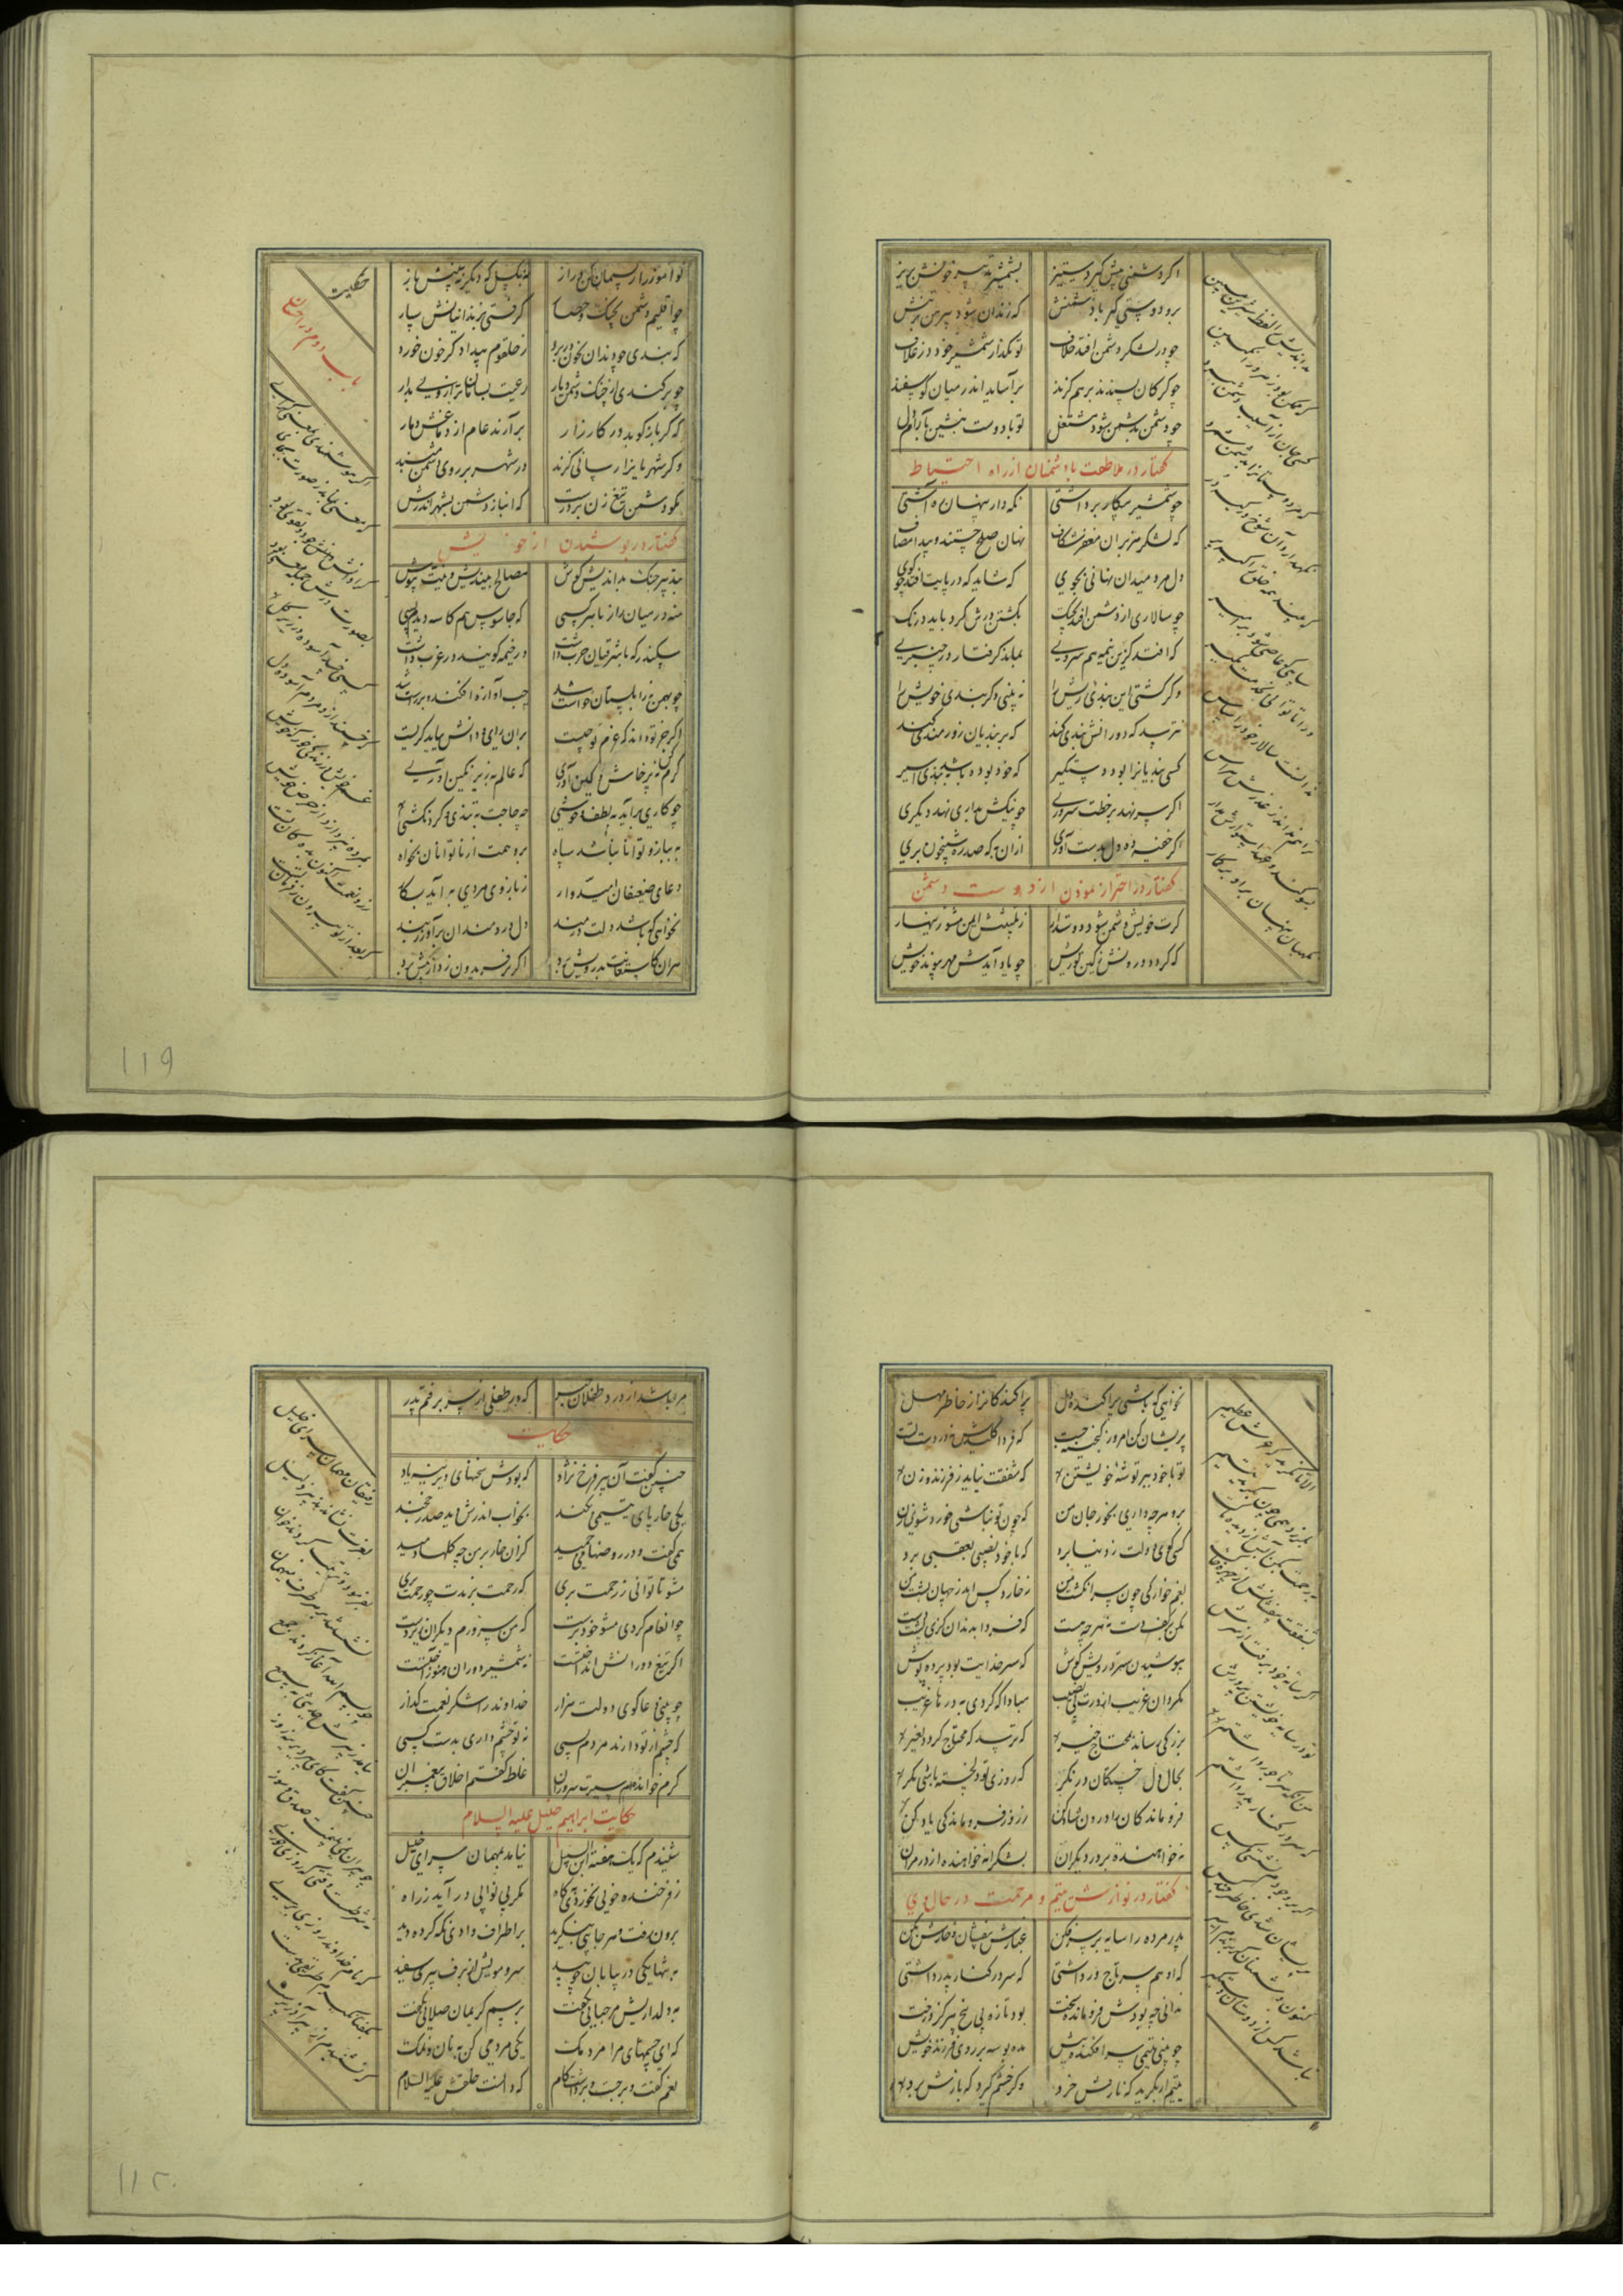 اگر دشمنی پیش گیرد ستیز بشمشیر تدبیر خونش بریز
برو دوستی گیر با دشمنش که زندان شود پیرهن بر تنش
چو در لشکر دشمن افتد خلاف تو بگذار شمشیر خود در غلاف
چو گرگان پسندند بر هم گزند برآساید اندر میان گوسفند
چو دشمن بدشمن شود مشتغل تو با دوست بنشین بآرام دل
گفتار در ملاطفت با دشمنان از راه احتیاط
چو شمشیر پیکار برداشتی نگه دار پنهان ره آشتی
که لشکر مغفر شکاف نهان صلح جستند و پیدا مصاف
دل مرد میدان نهانی بجوی که شاید که در پایت افتد چو گوی
چو سالاری از دشمن افتد بچنگ بکشتن درش کرد باید درنگ
که افتد کزین نیمه هم سروری بماند گرفتار در چنبری
و گر کشتی این بندی ریش را نه بینی دگر بندی خویش را
نترسد که دورانش بندی کند که بر بندیان زورمندی کند
کسی بندیانرا بود دستگیر که خود بوده باشد ببندی اسیر
اگر سر نهد بر خطت سروری چو نیکش بداری نهد دیگری
اگر خفیه ده دل بدست آوری ازان به که صد ره شبیخون بری
گفتار در احتراز نمودن از دوست دشمن
گرت خویش دشمن شود دوستدار ز تلبیسش ایمن مشو زینهار
که گردد درونش بکین تو ریش چو یاد آیدش مهر پیوند خویش
بداندیش را لفظ شیرین مبین
کسی جان از آسیب دشمن ببرد
نگهدارد آن شوخ در کیسه در
که بیند همه خلق را کیسه بر
سپاهی که عاصی شود بر امیر
ورا تا توانی بخدمت مگیر
ندانست سالار خود را سپاس
ترا هم نداند ز غدرش هراس
بسوگند و عهد استوارش مدار
نگهبان پنهان برو بر گمار
نوآموز را ریسمان کن دراز نه بگسل که دیگر نبینیش باز
چو اقلیم دشمن بجنگ و حصار گرفتی بزندانیانش سپار
که بندی چو دندان بخون در برد ز حلقوم بیدادگر خون خورد
چو برکندی از چنگ دشمن دیار رعیت بسامان تر از وی بدار
که گر باز کوبد در کارزار برآرند عام از دماغش دمار
و گر شهریانرا رسانی گزند در شهر بر روی دشمن مبند
مگو دشمن تیغ زن بر درست که انباز دشمن بشهر اندرست
گفتار در پوشیدن راز خویش
بتدبیر جنگ بداندیش کوش مصالح بیندیش و نیت بپوش
منه در میان راز با هر کسی که جاسوس هم کاسه دیدم بسی
سکندر که با شرقیان حرب داشت در خیمه گویند در غرب داشت
چو بهمن بزابلستان خواست شد چپ آوازه افکند و بر راست شد
اگر جز تو داند که عزم تو چیست بران رای و دانش بباید گریست
کرم کن نه پرخاش و کین آوری که عالم بزیر نگین آوری
چو کاری برآید بلطف و خوشی چه حاجت به تندی و گردنکشی
به بازو توانا نباشد سپاه برو همت از ناتوانان بخواه
دعای ضعیفان امیدوار ز بازوی مردی به آید بکار
نخواهی که باشد دلت دردمند دل دردمندان برآور ز بند
هران کاستعانت بدرویش برد اگر بر فریدون زد از پیش برد
حکایت
باب دوم در احسان
اگر هوشمندی بمعنی گرای
که معنی بماند ز صورت بجای
کرا دانش و جود و تقوی نبود
بصورت درش هیچ معنی نبود
کسی خسپد آسوده در زیر گل
که خسپند ازو مردم آسوده دل
غم خویش در زندگی خور که خویش
بمرده نپردازد از حرص خویش
زر و نعمت اکنون بده کان تست
که بعد از تو بیرون ز فرمان تست
نخواهی که باشی پراکنده دل پراکندگانرا ز خاطر مهل
پریشان کن امروز گنجینه چست که فردا کلیدش نه در دست تست
تو با خود ببر توشه خویشتن که شفقت نیاید ز فرزند و زن
برو هر چه داری بخور جان من
کسی گوی دولت ز دنیا برد که با خود نصیبی بعقبی برد
بغمخوارگی چون سر انگشت من نخارد کس اندر جهان پشت من
مکن بر کف دست نه هر چه هست که فردا بدندان گزی پشت دست
بپوشیدن ستر درویش کوش که ستر خدایت بود پرده پوش
مگردان غریب از درت بی نصیب مبادا که گردی بدرها غریب
بزرگی رساند بمحتاج خیر که ترسد که محتاج گردد بغیر
بحال دل خستگان در نگر که روزی تو دلخسته باشی مگر
فروماندگان را درون شاد کن ز روز فروماندگی یاد کن
نه خواهنده بر در دیگران بشکرانه خواهنده از در مران
گفتار در نوازش یتیم و مرحمت در حال وی
پدر مرده را سایه بر سر فکن غبارش بیفشان و خارش بکن
که او هم پسر تاج ور داشتی که سر در کنار پدر داشتی
ندانی چه بودش فرومانده سخت بود تازه بی بیخ هرگز درخت
چو بینی یتیمی سر افکنده پیش مده بوسه بر روی فرزند خویش
یتیم ار بگرید که نازش خرد و گر خشم گیرد که بارش برد
الا تا نگرید که عرش عظیم
بلرزد همی چون بگرید یتیم
برحمت بکن آبش از دیده پاک
بشفقت بیفشانش از چهره خاک
اگر سایه خود برفت از سرش
تو در سایه خویشتن پرورش
من آنگه سر تاجور داشتم
که سر در کنار پدر داشتم
اگر بر وجودم نشستی مگس
پریشان شدی خاطر چند کس
کنون دشمنان گر برندم اسیر
نباشد کس از دوستانم نصیر
مرا باشد از درد طفلان خبر که در طفلی از سر برفتم پدر
حکایت
چنین گفت آن پیر فرخ نژاد که بودش سخنهای دیرینه یاد
یکی خار پای یتیمی بکند بخواب اندرش دید صدر خجند
همی گفت و در روضها می چمید کزان خار بر من چه گلها دمید
مشو تا توانی ز رحمت بری که رحمت برندت چو رحمت بری
چو انعام کردی مشو خود پرست که من سرورم دیگران زیردست
اگر تیغ دورانش انداختست نه شمشیر دوران هنوز آختست
چو بینی دعاگوی دولت هزار خداوند را شکر نعمت گذار
که چشم از تو دارند مردم بسی نه تو چشم داری بدست کسی
کرم خوانده ام سیرت سروران غلط گفتم اخلاق پیغمبران
حکایت ابراهیم خلیل علیه السلام
شنیدم که یک هفته ابن السبیل نیامد بمهمان سرای خلیل
ز فرخنده خویی نخوردی بگاه مگر بی نوایی در آید ز راه
برون رفت و هر جانبی بنگرید بر اطراف وادی نگه کرد و دید
به تنها یکی در بیابان چو بید سر و مویش از برف پیری سفید
بدلداریش مرحبایی بگفت برسم کریمان صلایی بگفت
که ای چشمهای مرا مردمک یکی مردمی کن به نان و نمک
نعم گفت و برجست و برداشت گام که دانست خلقش علیه السلام
رفیقان مهمان سرای خلیل
بعزت نشاندند پیر ذلیل
بفرمود و ترتیب کردند خوان
نشستند بر هر طرف همگنان
چو بسم الله آغاز کردند جمع
نیامد ز پیرش حدیثی بسمع
چنین گفت کای پیر دیرینه روز
چو پیران نمی بینمت صدق و سوز
نه شرطست وقتی که روزی خوری
که نام خداوند روزی بری
بگفتا نگیرم طریقی بدست
که نشنیدم از پیر آذرپرست
119